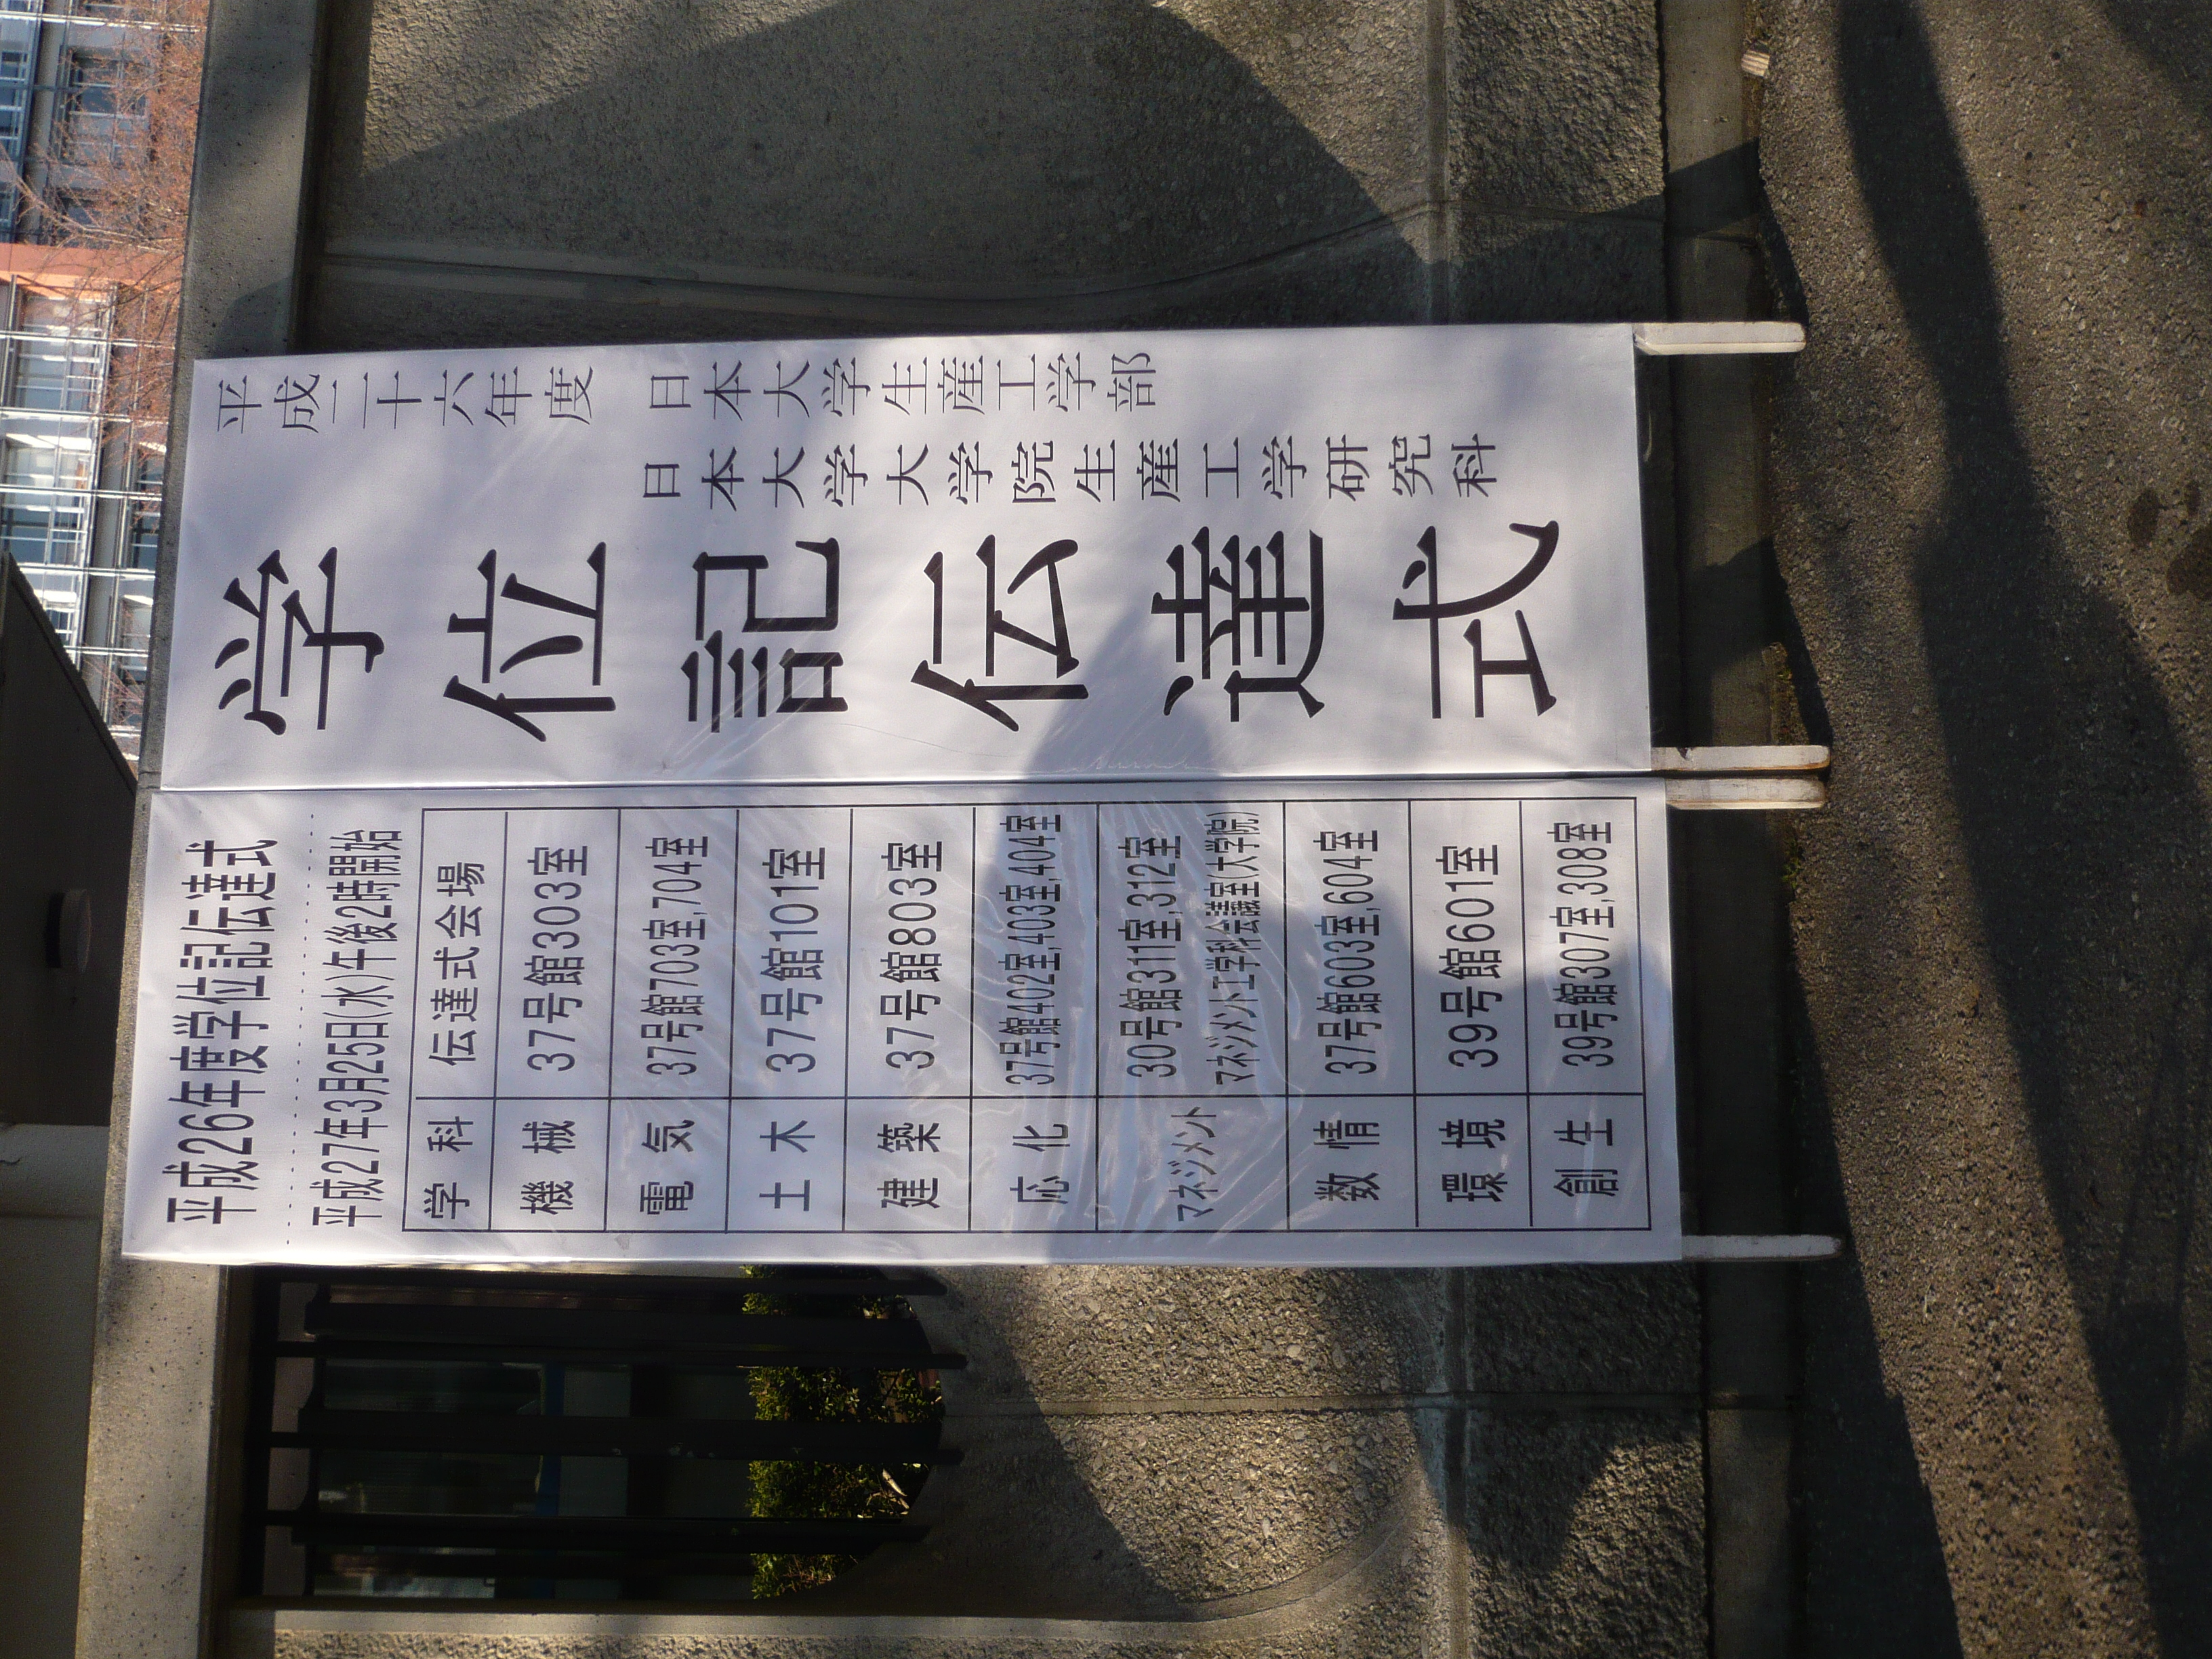 平成二十六年度　日本大学生産工学部
日本大学大学院生産工学研究科
学位記伝達式
平成26年度学位記伝達式
平成27年3月25日(水)午後2時開始
学科　伝達式会場
機械　37号館303室
電気　37号館703室,704室
土木　37号館101室
建築　37号館803室
応化　37号館402室,403室,404室
マネジメント　30号館311室,312室
マネジメント工学科会議室(大学院)
数情　37号館603室,604室
環境　39号館601室
創生　39号館307室,308室